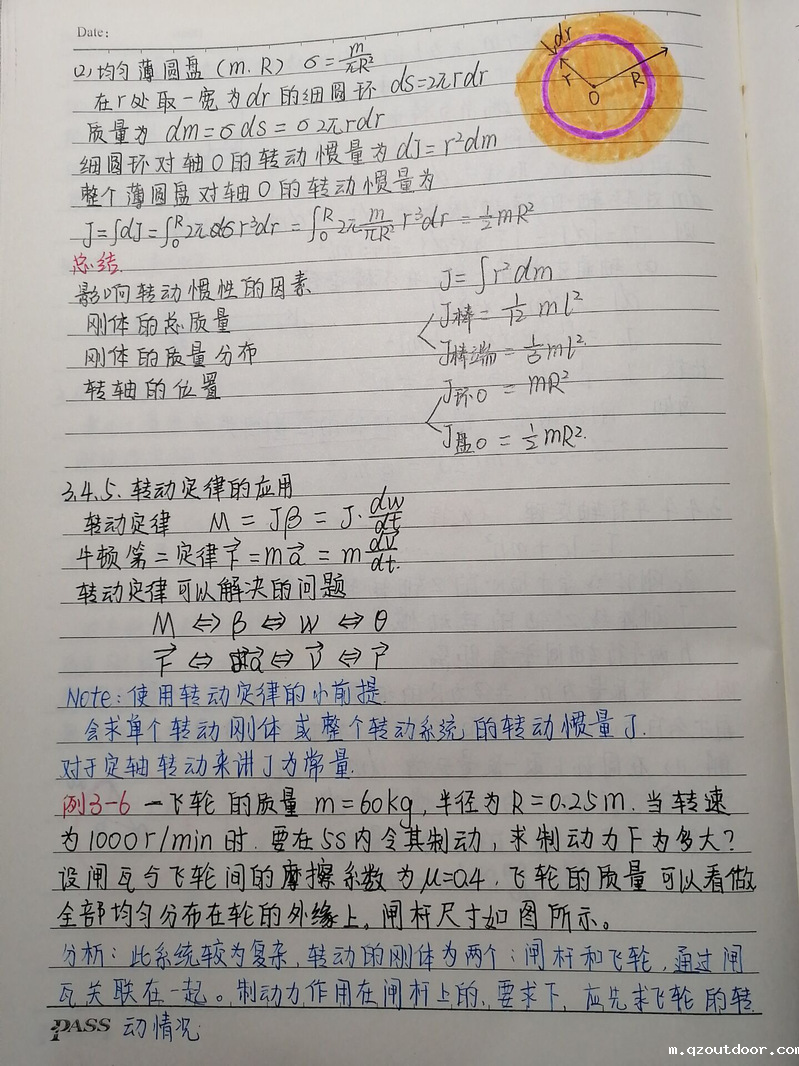 Date:
(2) 均匀薄圆盘 (m.R) σ=m/πR²
在r处取一宽为dr的细圆环 ds=2πrdr
质量为 dm=σds=σ2πrdr
细圆环对轴O的转动惯量为dJ=r²dm
整个薄圆盘对轴O的转动惯量为
J=∫dJ=∫₀ᴿ2πσr³dr=∫₀ᴿ2π m/πR² r³dr=½mR²
dr
r
R
O
总结.
影响转动惯性的因素
刚体的总质量
刚体的质量分布
转轴的位置
J=∫r²dm
J棒=1/12 ml²
J棒端=1/3 ml²
J环O=mR²
J盘O=½mR².
3.4.5.转动定律的应用
转动定律 M=Jβ=J·dw/dt
牛顿第二定律F⃗=ma⃗=m dv⃗/dt.
转动定律可以解决的问题
M⇔β⇔w⇔θ
F⃗⇔a⃗⇔v⃗⇔r⃗
Note:使用转动定律的小前提.
会求单个转动刚体或整个转动系统的转动惯量J.
对于定轴转动来讲J为常量.
例3-6 一飞轮的质量m=60kg,半径为R=0.25m.当转速
为1000r/min时.要在5s内令其制动,求制动力F为多大?
设闸瓦与飞轮间的摩擦系数为μ=0.4.飞轮的质量可以看做
全部均匀分布在轮的外缘上。闸杆尺寸如图所示。
分析:此系统较为复杂,转动的刚体为两个:闸杆和飞轮,通过闸
瓦关联在一起。制动力作用在闸杆上的、要求F,应先求飞轮的转
PASS 动情况.
m.qzoutdoor.com